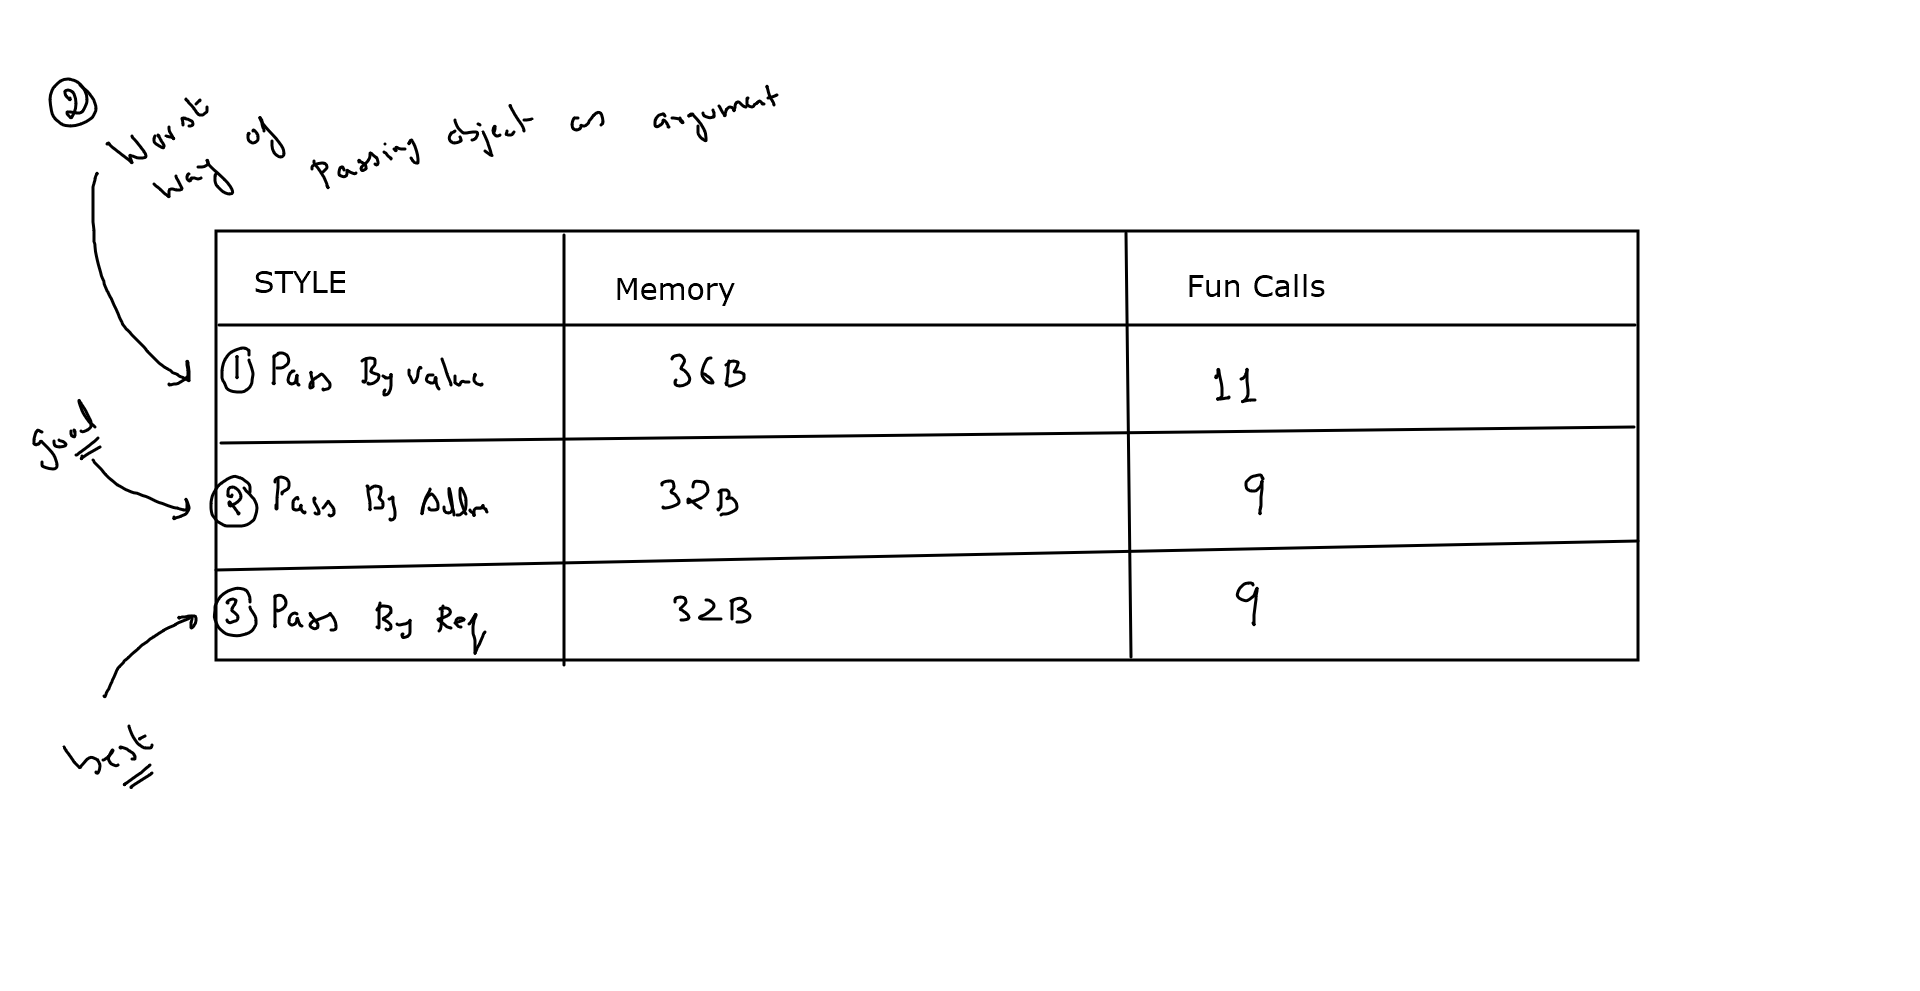 ②
Worst
way of Passing object as argument
STYLE Memory Fun Calls
① Pass By value 36B 11
good
② Pass By Addr 32B 9
③ Pass By Ref 32B 9
best